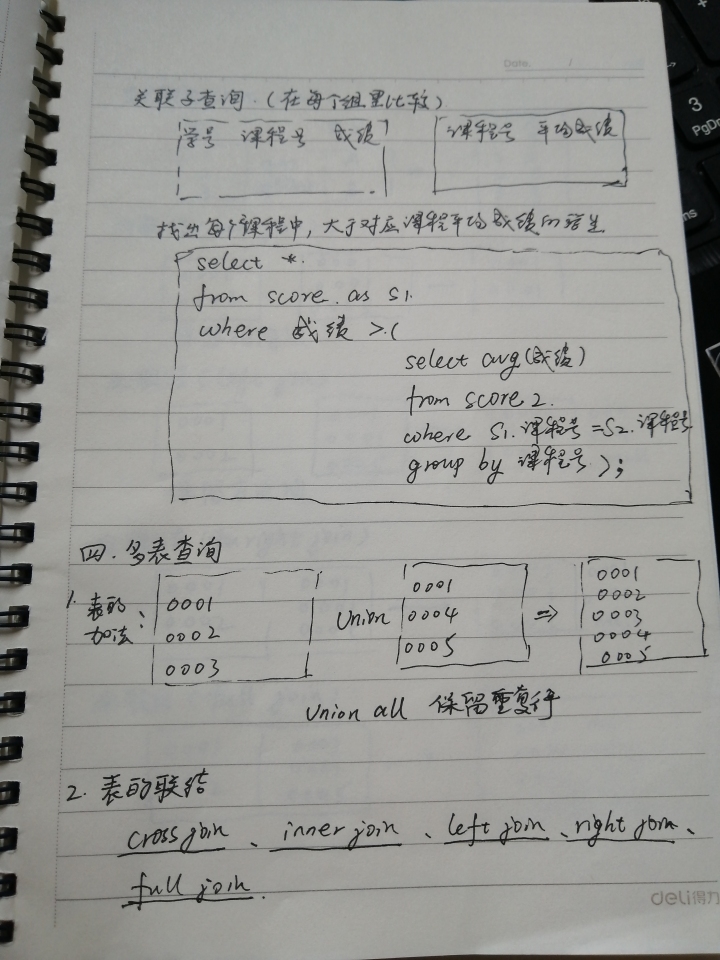 Date. /
关联子查询.(在每个组里比较)
学号 课程号 成绩
课程号 平均成绩
找出每个课程中,大于对应课程平均成绩的学生
select *.
from score. as s1.
where 成绩 >.(
select avg(成绩)
from score 2.
where s1.课程号 =s2.课程号
group by 课程号 );
四.多表查询
1. 表的加法:
0001
0002
0003
Union
0001
0004
0005
⇒
0001
0002
0003
0004
0005
Union all 保留重复行
2. 表的联结
cross join 、inner join 、left join、right join、
full join.
deli得力
3
PgDn